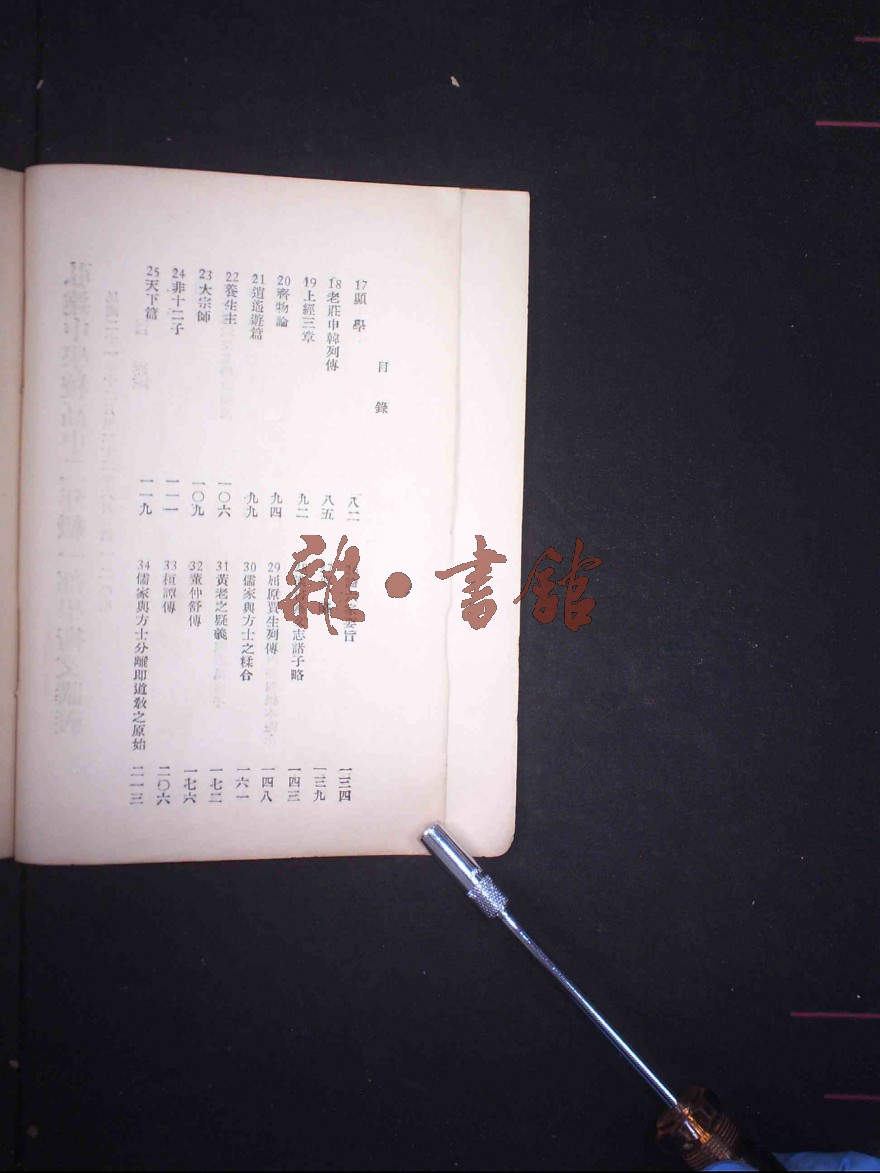 目錄
17 顯學 八二
18 老莊申韓列傳 八五
19 上經三章 九二
20 齊物論 九四
21 逍遙遊篇 九九
22 養生主 一〇六
23 大宗師 一〇九
24 非十二子 一一一
25 天下篇 一一九
要旨 一三四
一三九
文志諸子略 一四三
29 屈原賈生列傳 一四八
30 儒家與方士之糅合 一六一
31 黃老之疑義 一七二
32 董仲舒傳 一七六
33 桓譚傳 二〇六
34 儒家與方士分離即道敎之原始 二一三
雜·書館